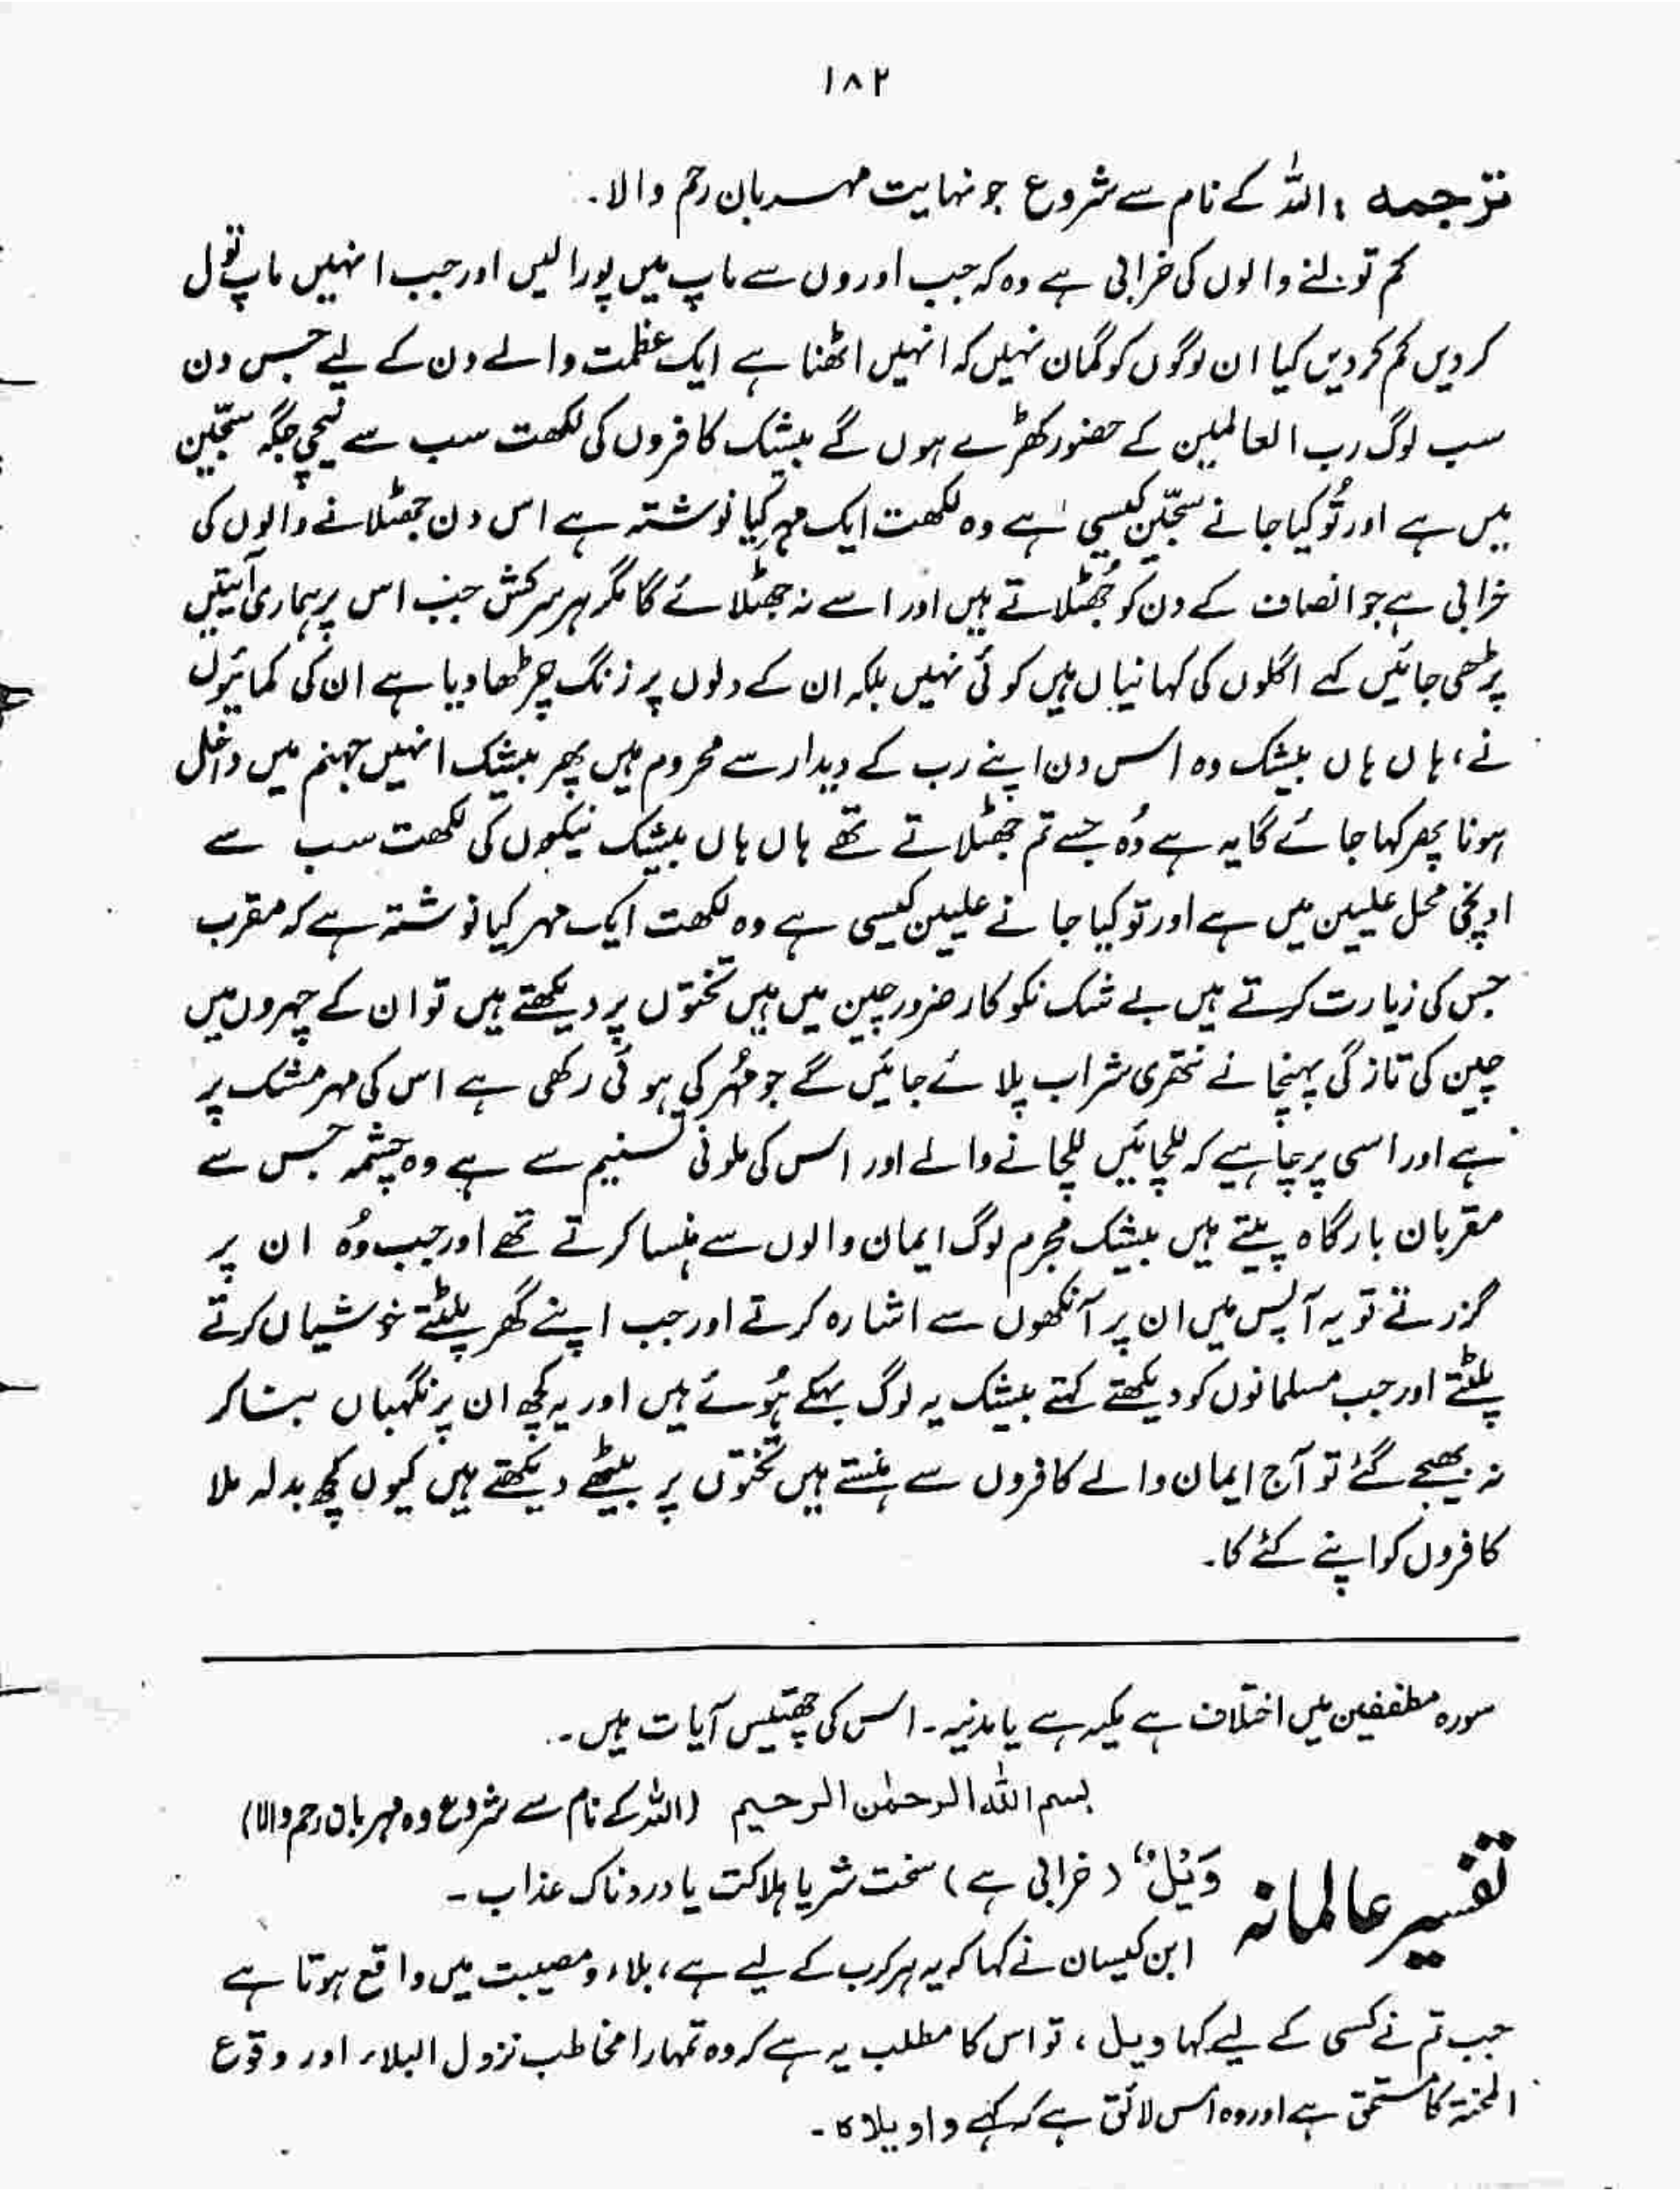 ۱۸۲
ترجمہ : اللہ کے نام سے شروع جو نہایت مہربان رحم والا۔
کم تولنے والوں کی خرابی ہے وہ کہ جب اوروں سے ماپ میں پورا لیں اور جب انہیں ماپ تول
کر دیں کم کر دیں کیا ان لوگوں کو گمان نہیں کہ انہیں اٹھنا ہے ایک عظمت والے دن کے لیے جس دن
سب لوگ رب العالمین کے حضور کھڑے ہوں گے بیشک کافروں کی لکھت سب سے نیچی جگہ سجّین
میں ہے اور تُو کیا جانے سجّین کیسی ہے وہ لکھت ایک مہر کیا نوشتہ ہے اس دن جھٹلانے والوں کی
خرابی ہے جو انصاف کے دن کو جُھٹلاتے ہیں اور اسے نہ جھٹلائے گا مگر ہر سرکش جب اس پر ہماری آیتیں
پڑھی جائیں کہے اگلوں کی کہانیاں ہیں کوئی نہیں بلکہ ان کے دلوں پر زنگ چڑھا دیا ہے ان کی کمائیوں
نے، ہاں ہاں بیشک وہ اس دن اپنے رب کے دیدار سے محروم ہیں پھر بیشک انہیں جہنم میں داخل
ہونا پھر کہا جائے گا یہ ہے وُہ جسے تم جھٹلاتے تھے ہاں ہاں بیشک نیکوں کی لکھت سب سے
اونچی محل علیین میں ہے اور تو کیا جانے علیین کیسی ہے وہ لکھت ایک مہر کیا نوشتہ ہے کہ مقرب
جس کی زیارت کرتے ہیں بے شک نکوکار ضرور چین میں ہیں تختوں پر دیکھتے ہیں تو ان کے چہروں میں
چین کی تازگی پہنچانے نتھری شراب پلائے جائیں گے جو مُہر کی ہوئی رکھی ہے اس کی مہر مشک پر
ہے اور اسی پر چاہیے کہ للچائیں للچانے والے اور اس کی ملونی تسنیم سے ہے وہ چشمہ جس سے
مقربان بارگاہ پیتے ہیں بیشک مجرم لوگ ایمان والوں سے ہنسا کرتے تھے اور جب وُہ ان پر
گزرتے تو یہ آپس میں ان پر آنکھوں سے اشارہ کرتے اور جب اپنے گھر پلٹتے خوشیاں کرتے
پلٹتے اور جب مسلمانوں کو دیکھتے کہتے بیشک یہ لوگ بہکے ہُوئے ہیں اور یہ کچھ ان پر نگہباں بنا کر
نہ بھیجے گئے تو آج ایمان والے کافروں سے ہنستے ہیں تختوں پر بیٹھے دیکھتے ہیں کیوں کچھ بدلہ ملا
کافروں کو اپنے کئے کا۔
سورہ مطففین میں اختلاف ہے مکیہ ہے یا مدنیہ۔ اس کی چھتیس آیات ہیں۔
بسم اللہ الرحمٰن الرحیم (اللہ کے نام سے شروع وہ مہربان رحم والا)
تفسیر عالمانہ وَيْلٌ (خرابی ہے) سخت شر یا ہلاکت یا دردناک عذاب۔
ابن کیسان نے کہا کہ یہ ہر کرب کے لیے ہے، بلاء و مصیبت میں واقع ہوتا ہے
جب تم نے کسی کے لیے کہا ویل ، تو اس کا مطلب یہ ہے کہ وہ تمہارا مخاطب نزول البلاء اور وقوع
المحنۃ کا مستحق ہے اور وہ اس لائق ہے کہ کہے واویلاہ۔